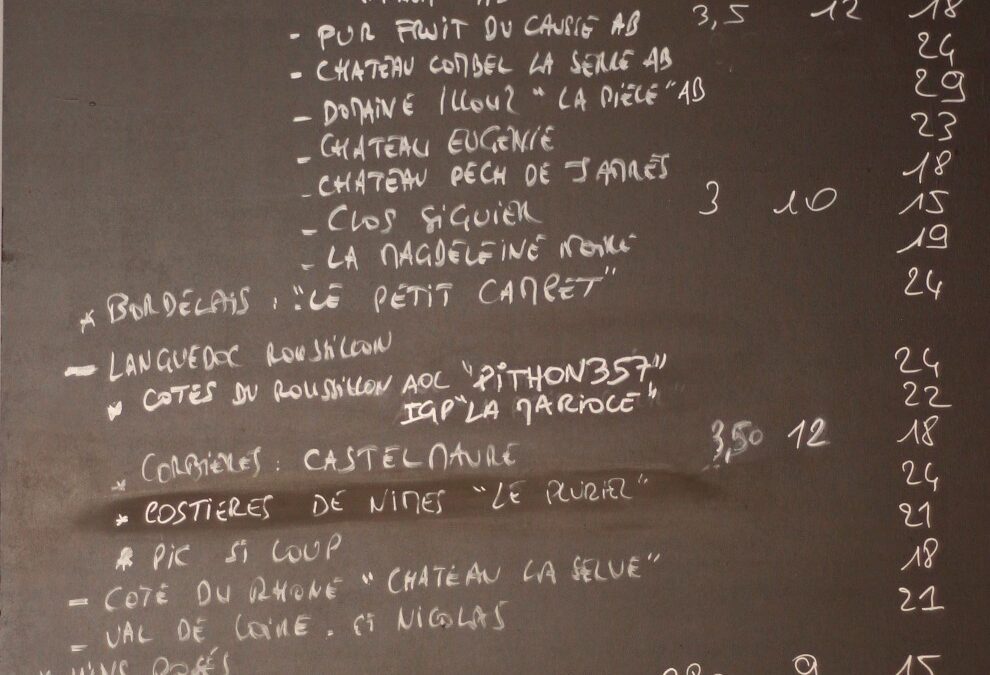 - PUR FRUIT DU CAUSSE AB 3,5 12 18
- CHATEAU COMBEL LA SERRE AB 24
- DOMAINE ILLOUZ "LA PIÈCE" AB 29
- CHATEAU EUGENIE 23
- CHATEAU PECH DE JAMMES 18
- CLOS SIGUIER 3 10 15
- LA MAGDELEINE NOIRE 19
* BORDELAIS : "LE PETIT CAMPET" 24
- LANGUEDOC ROUSSILLON
* COTES DU ROUSSILLON AOC "PITHON 357" 24
IGP "LA MARIOLE" 22
* CORBIERES : CASTELMAURE 3,50 12 18
* COSTIERES DE NIMES "LE PLURIEL" 24
* PIC ST LOUP 21
- COTE DU RHONE "CHATEAU LA SELVE" 18
- VAL DE LOIRE . ST NICOLAS 21
* VINS ROSÉS 9 15